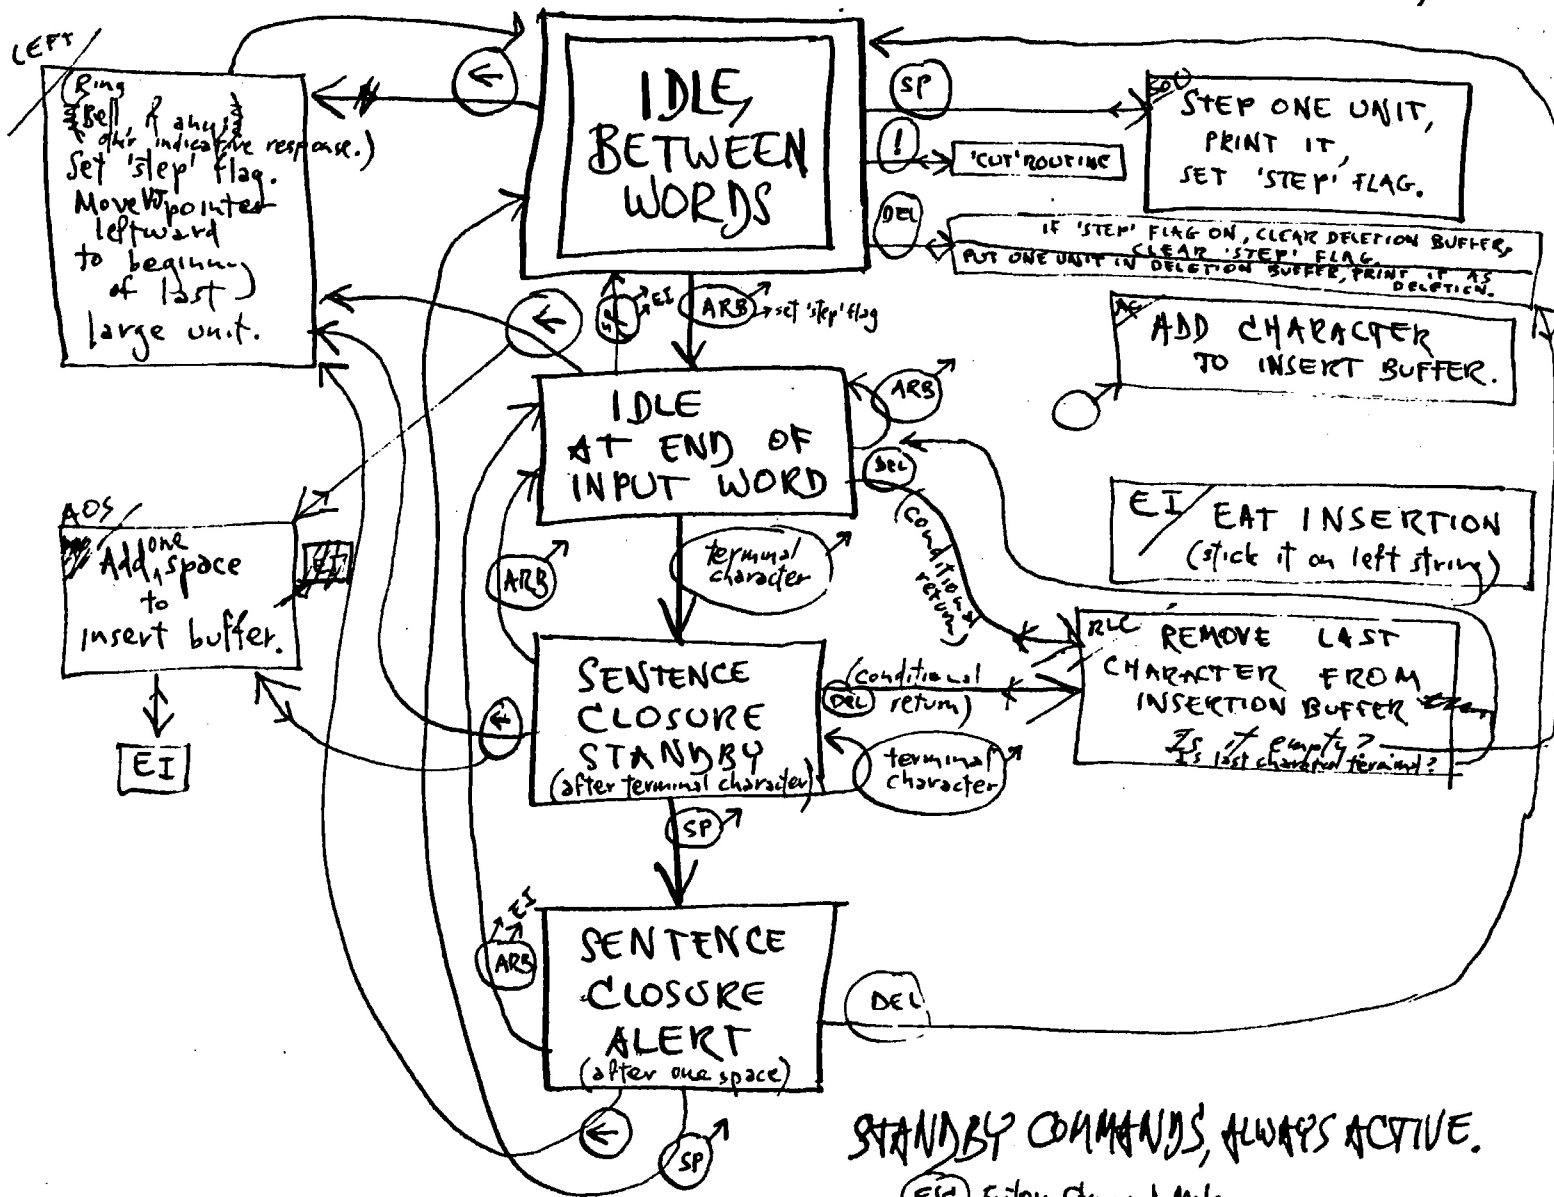 LEFT
(Ring
Bell, & any
other indicative response.)
Set 'step' flag.
Move pointer
leftward
to beginning
of last
large unit.
←
IDLE,
BETWEEN
WORDS
SP
!
DEL
SOU
STEP ONE UNIT,
PRINT IT,
SET 'STEP' FLAG.
'CUT' ROUTINE
IF 'STEP' FLAG ON, CLEAR DELETION BUFFER,
CLEAR 'STEP' FLAG.
PUT ONE UNIT IN DELETION BUFFER, PRINT IT AS
DELETION.
←
SP
EI
ARB
set 'step' flag
AC
ADD CHARACTER
TO INSERT BUFFER.
IDLE
AT END OF
INPUT WORD
ARB
DEL
(conditional
return)
EI
EAT INSERTION
(stick it on left string)
AOS
Add one space
to
insert buffer.
EI
EI
ARB
terminal
character
RLC
REMOVE LAST
CHARACTER FROM
INSERTION BUFFER
Is it empty?
Is last character terminal?
SENTENCE
CLOSURE
STANDBY
(after terminal character)
←
(conditional
DEL return)
terminal
character
SP
EI
ARB
SENTENCE
CLOSURE
ALERT
(after one space)
DEL
←
SP
STANDBY COMMANDS, ALWAYS ACTIVE.